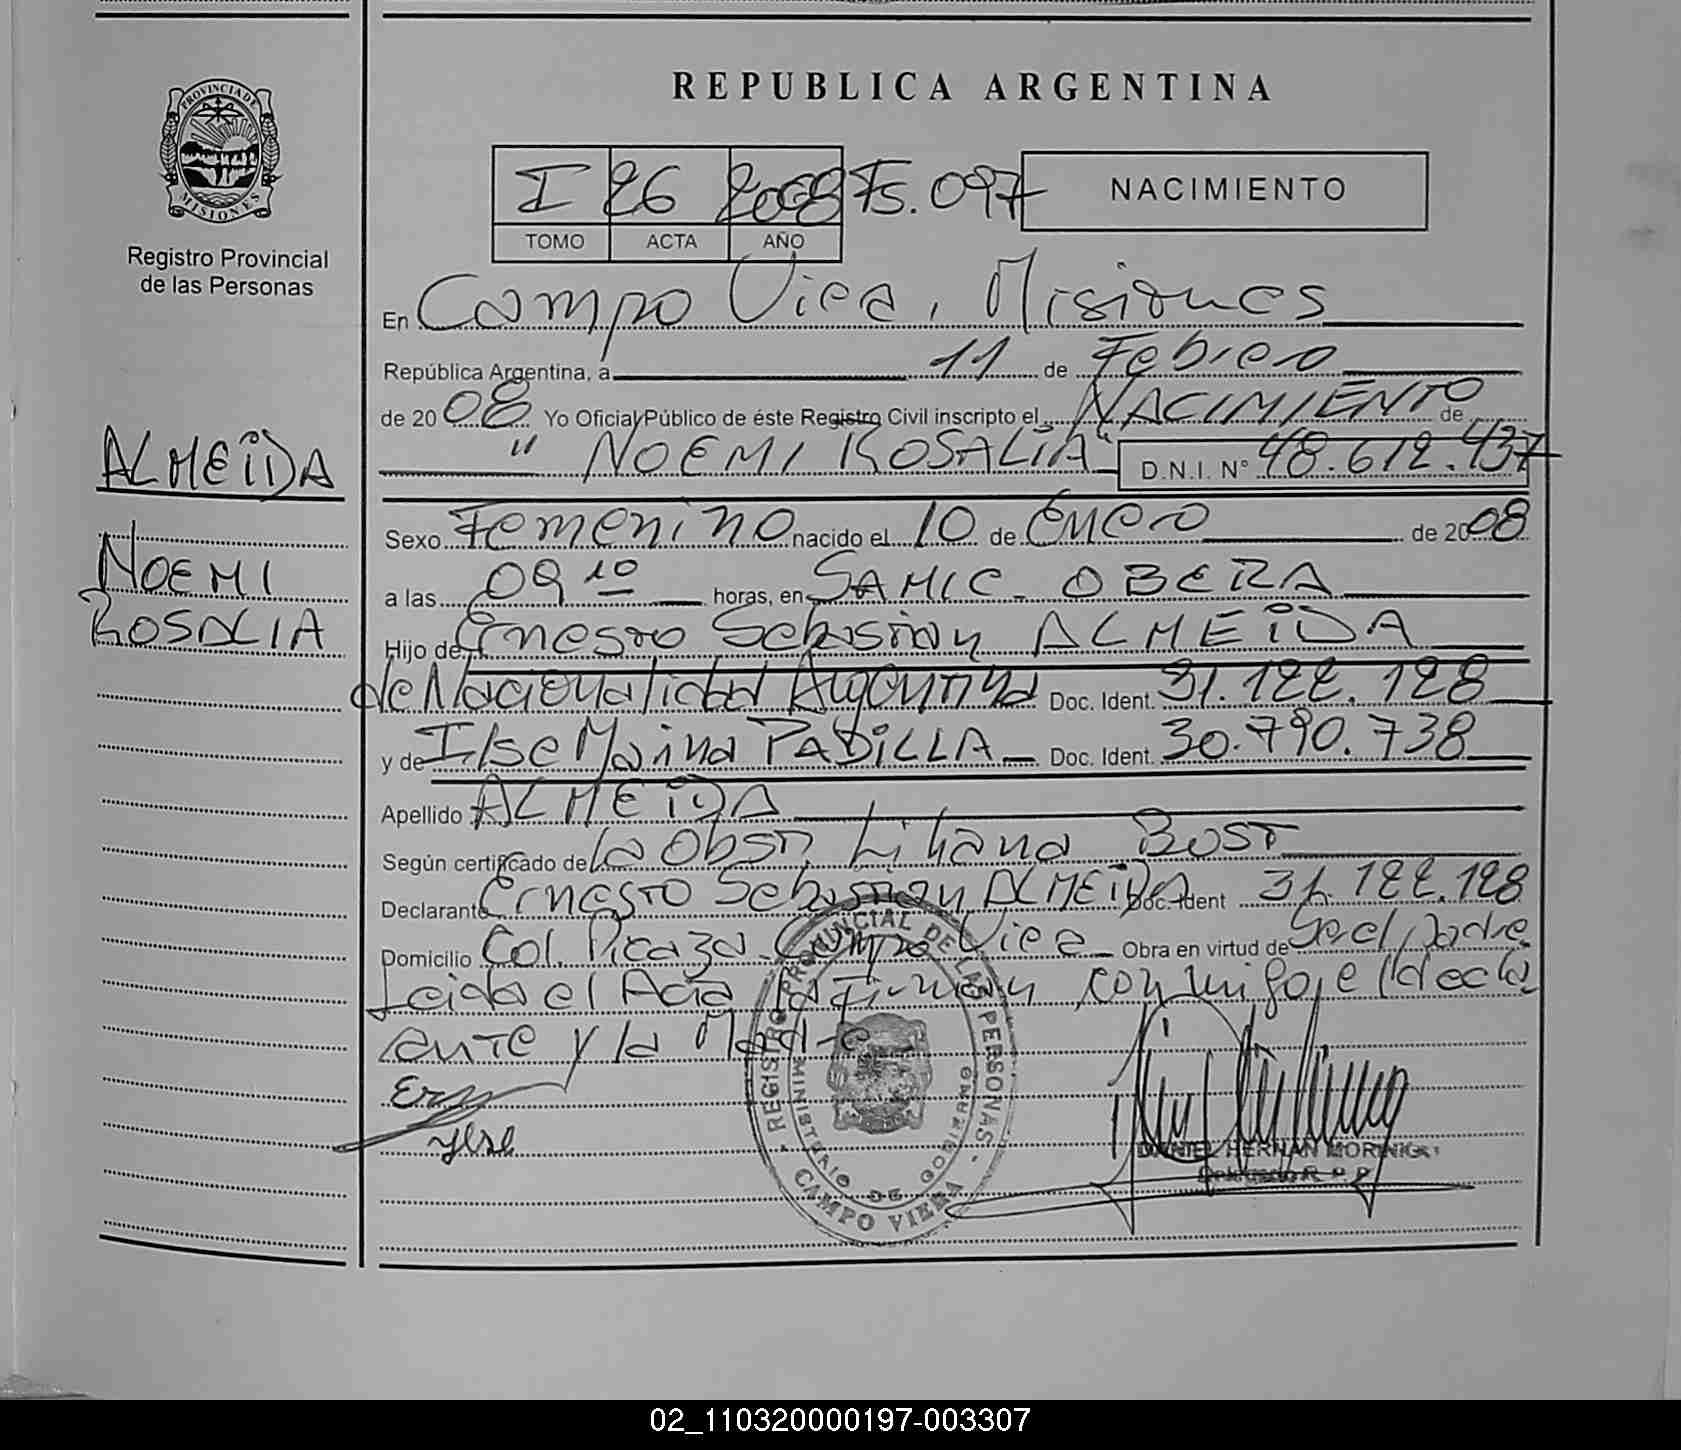 REPUBLICA ARGENTINA
PROVINCIA DE
MISIONES
Registro Provincial
de las Personas
I 26 2008 Fs. 097
TOMO ACTA AÑO
NACIMIENTO
En Campo Viera, Misiones
República Argentina, a 11 de Febrero
de 2008 Yo Oficial Público de éste Registro Civil inscripto el NACIMIENTO de
" NOEMI ROSALIA" D.N.I. Nº 48.612.437
ALMEIDA
NOEMI
ROSALIA
Sexo Femenino nacido el 10 de Enero de 2008
a las 09 10 horas, en SAMIC - OBERA
Hijo de Ernesto Sebastian ALMEIDA
de Nacionalidad Argentina Doc. Ident. 31.122.128
y de Ilse Marina PADILLA Doc. Ident. 30.790.738
Apellido ALMEIDA
Según certificado de la Obst. Liliana BOST
Declarante Ernesto Sebastian ALMEIDA Doc. Ident 31.122.128
Domicilio Col. Picaza - Campo Viera Obra en virtud de Ser el padre
Leida el Acta la Firman conmigo, el decla
rante y la Madre
Ilse
REGISTRO PROVINCIAL DE LAS PERSONAS
MINISTERIO DE GOBIERNO
CAMPO VIERA
DANIEL HERNAN MORINIGO
Delegado R. P. P.
02_110320000197-003307